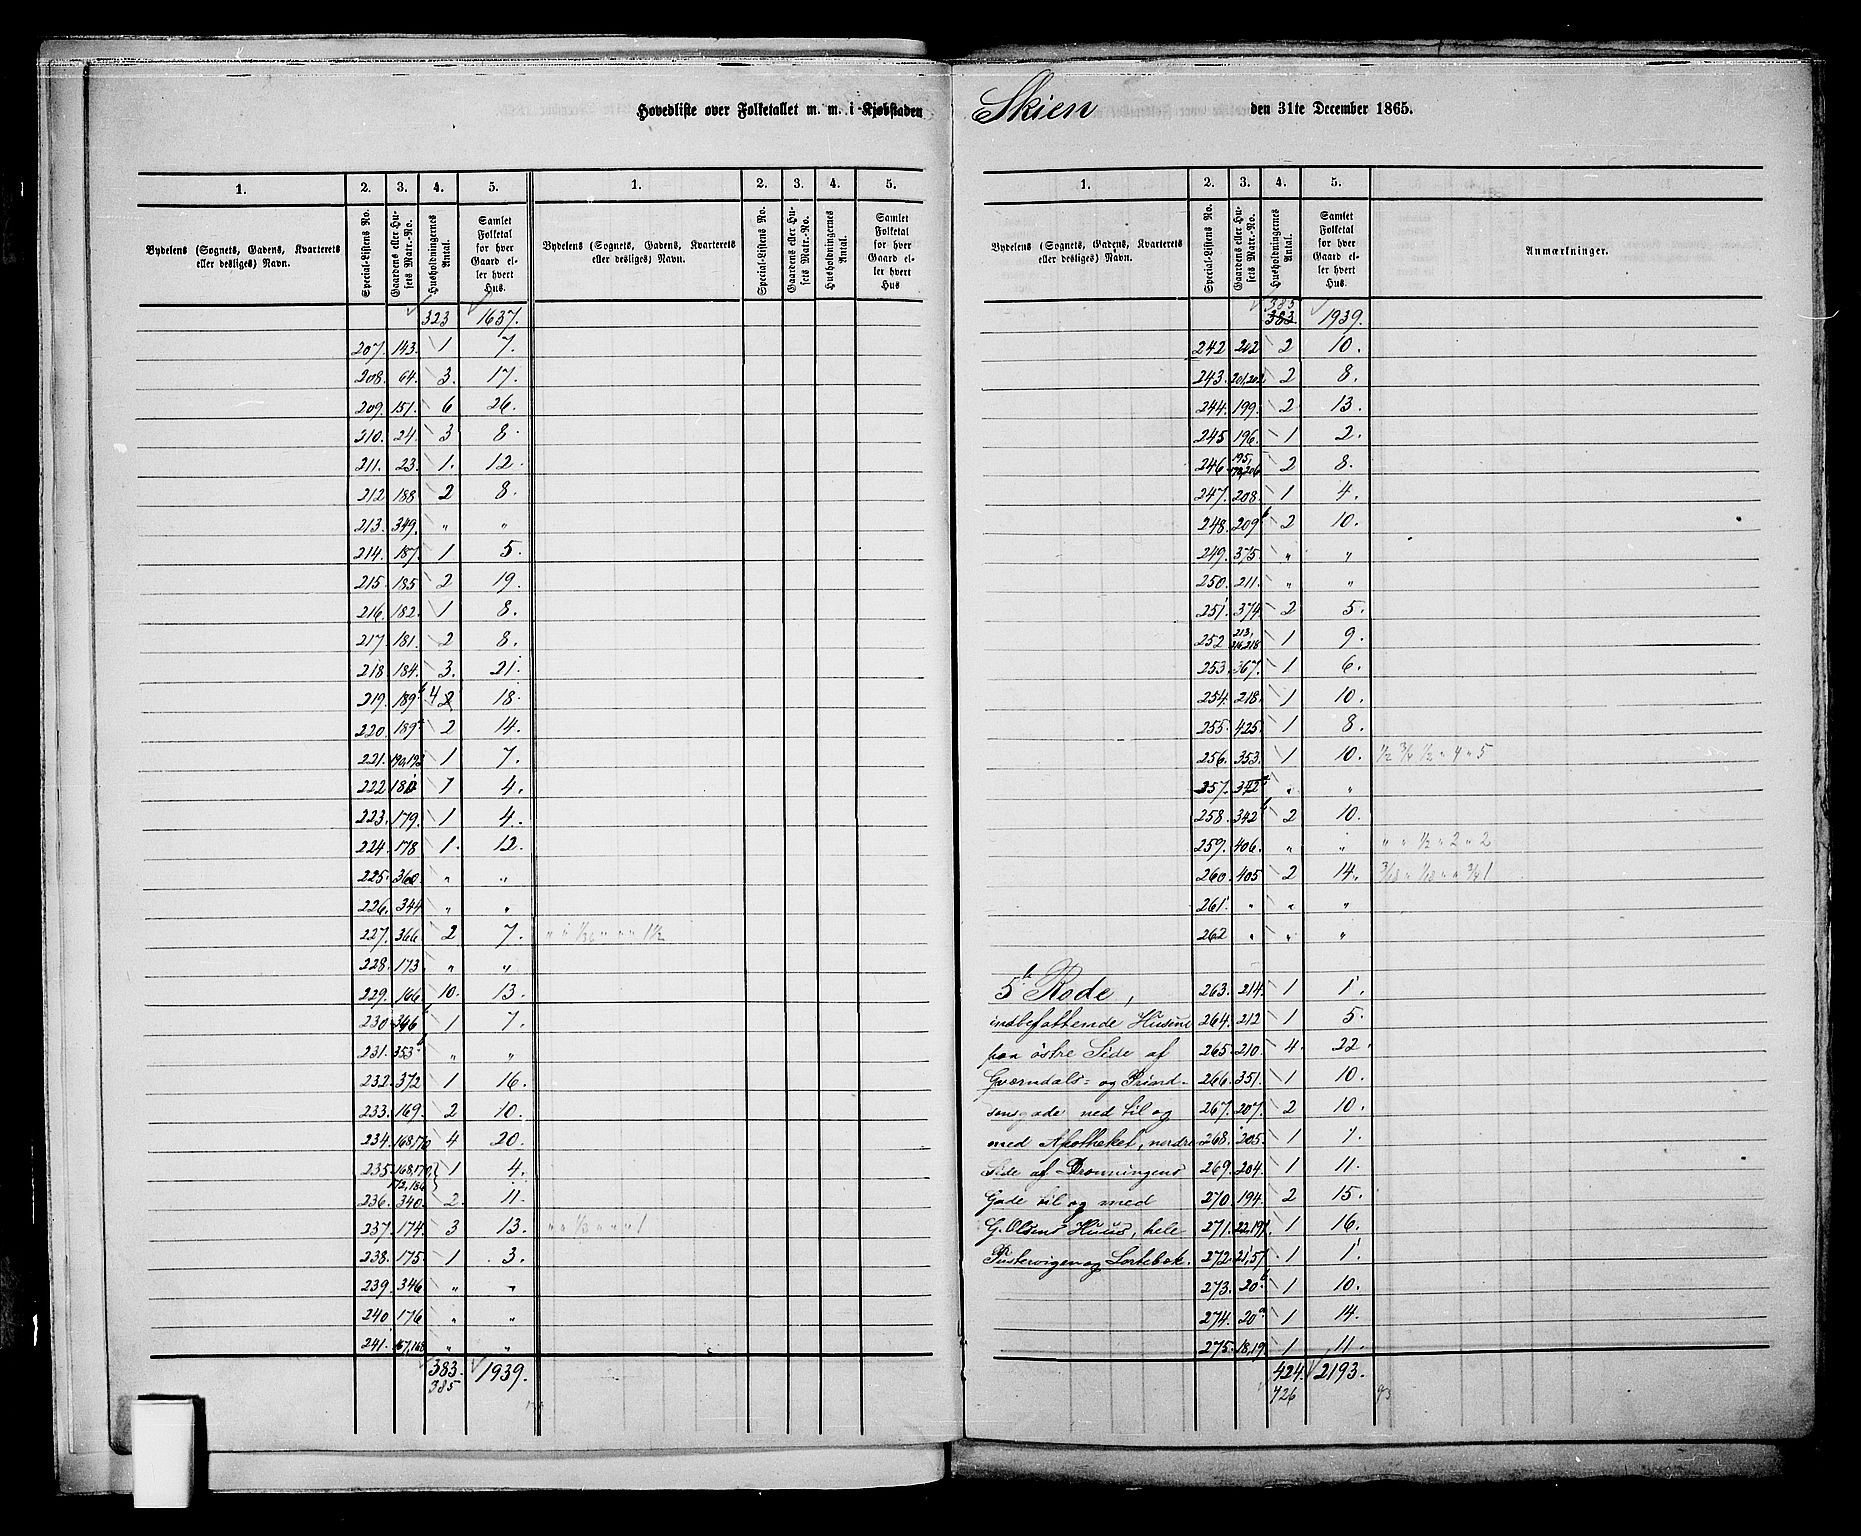 Hovedliste over Folketallet m. m. i Kjøbstaden Skien den 31te December 1865.
1. 2. 3. 4. 5. 1. 2. 3. 4. 5.
Bydelens (Sognets, Gadens, Kvarterets eller desliges) Navn. Special-Listens No. Gaardens eller Husets Matr.-No. Husholdningernes Antal. Samlet Folketal for hver Gaard eller hvert Hus. Bydelens (Sognets, Gadens, Kvarterets eller desliges) Navn. Special-Listens No. Gaardens eller Husets Matr.-No. Husholdningernes Antal. Samlet Folketal for hver Gaard eller hvert Hus
323 1637.
207. 143. 1 7.
208. 64. 3. 17.
209. 151. 6 26.
210. 24. 3 8.
211. 23. 1. 12.
212 188 2 8.
213. 349. " "
214. 187. 1 5.
215. 185 2 19.
216. 182. 1 8.
217 181. 2 8.
218 184. 3. 21.
219. 189b 4 18.
220. 189a 2 14.
221. 190,192 1 7.
222 180 1 4.
223. 179. 1 4.
224. 178 1. 12.
225. 360. " "
226. 344 " "
227. 366 2 7. " " 1/36 " " " 1 1/2
228. 173. " "
229. 166 10. 13.
230. 346b 1 7.
231. 353b " "
232. 372 1 16.
233. 169. 2 10.
234. 168,170 4 20.
235 168,170, 172,186 1 4.
236. 340. 2. 11.
237. 174. 3 13. " " 1/3 " " " 1
238. 175. 1 3.
239. 346 " "
240 176 " "
241. 167,168 " "
383. 1939.
385
1. 2. 3. 4. 5.
Bydelens (Sognets, Gadens, Kvarterets eller desliges) Navn. Special-Listens No. Gaardens eller Husets Matr.-No. Husholdningernes Antal. Samlet Folketal for hver Gaard eller hvert Hus. Anmærkninger.
385
383 1939.
242 202 2 10.
243. 201,202. 2 8.
244. 199. 2 13.
245 196. 1 2.
246. 195, 206 2 8.
247. 208. 1 4.
248. 209b 2 10.
249. 375. " "
250. 211. " "
251. 374 2 5.
252 213, 216,218 1 9.
253. 367. 1 6.
254. 218. 1 10.
255. 425. 1 8.
256. 353. 1 10. 1/2 3/4 1/2 " 4 " 5
257. 342a " "
258. 342b 2 10.
259. 406. " " " " 1/2 " 2 " 2
260. 405 2 14. 3/4 1
261. " " "
262 " " "
5b Rode, 263. 214. 1 1.
indbefattende Husene 264. 212 1 5.
paa østre Side af 265. 210. 4. 22.
Gværndals- og Prind- 266. 351. 1 10.
sensgade ned til og 267. 207. 2 10.
med Apotheket, nordre 268. 205. 1 7.
Side af Dronningens 269. 204. 1 11.
Gade til og med 270. 194. 2 15.
G. Olsens Huus, hele 271. 22,191. 1 16.
Pustervigen og Lortebæk. 272. 21,57. 1 1.
273. 20b 1 10.
274. 20a 1 14.
275. 18,19. 1 11.
424. 2193.
426 93